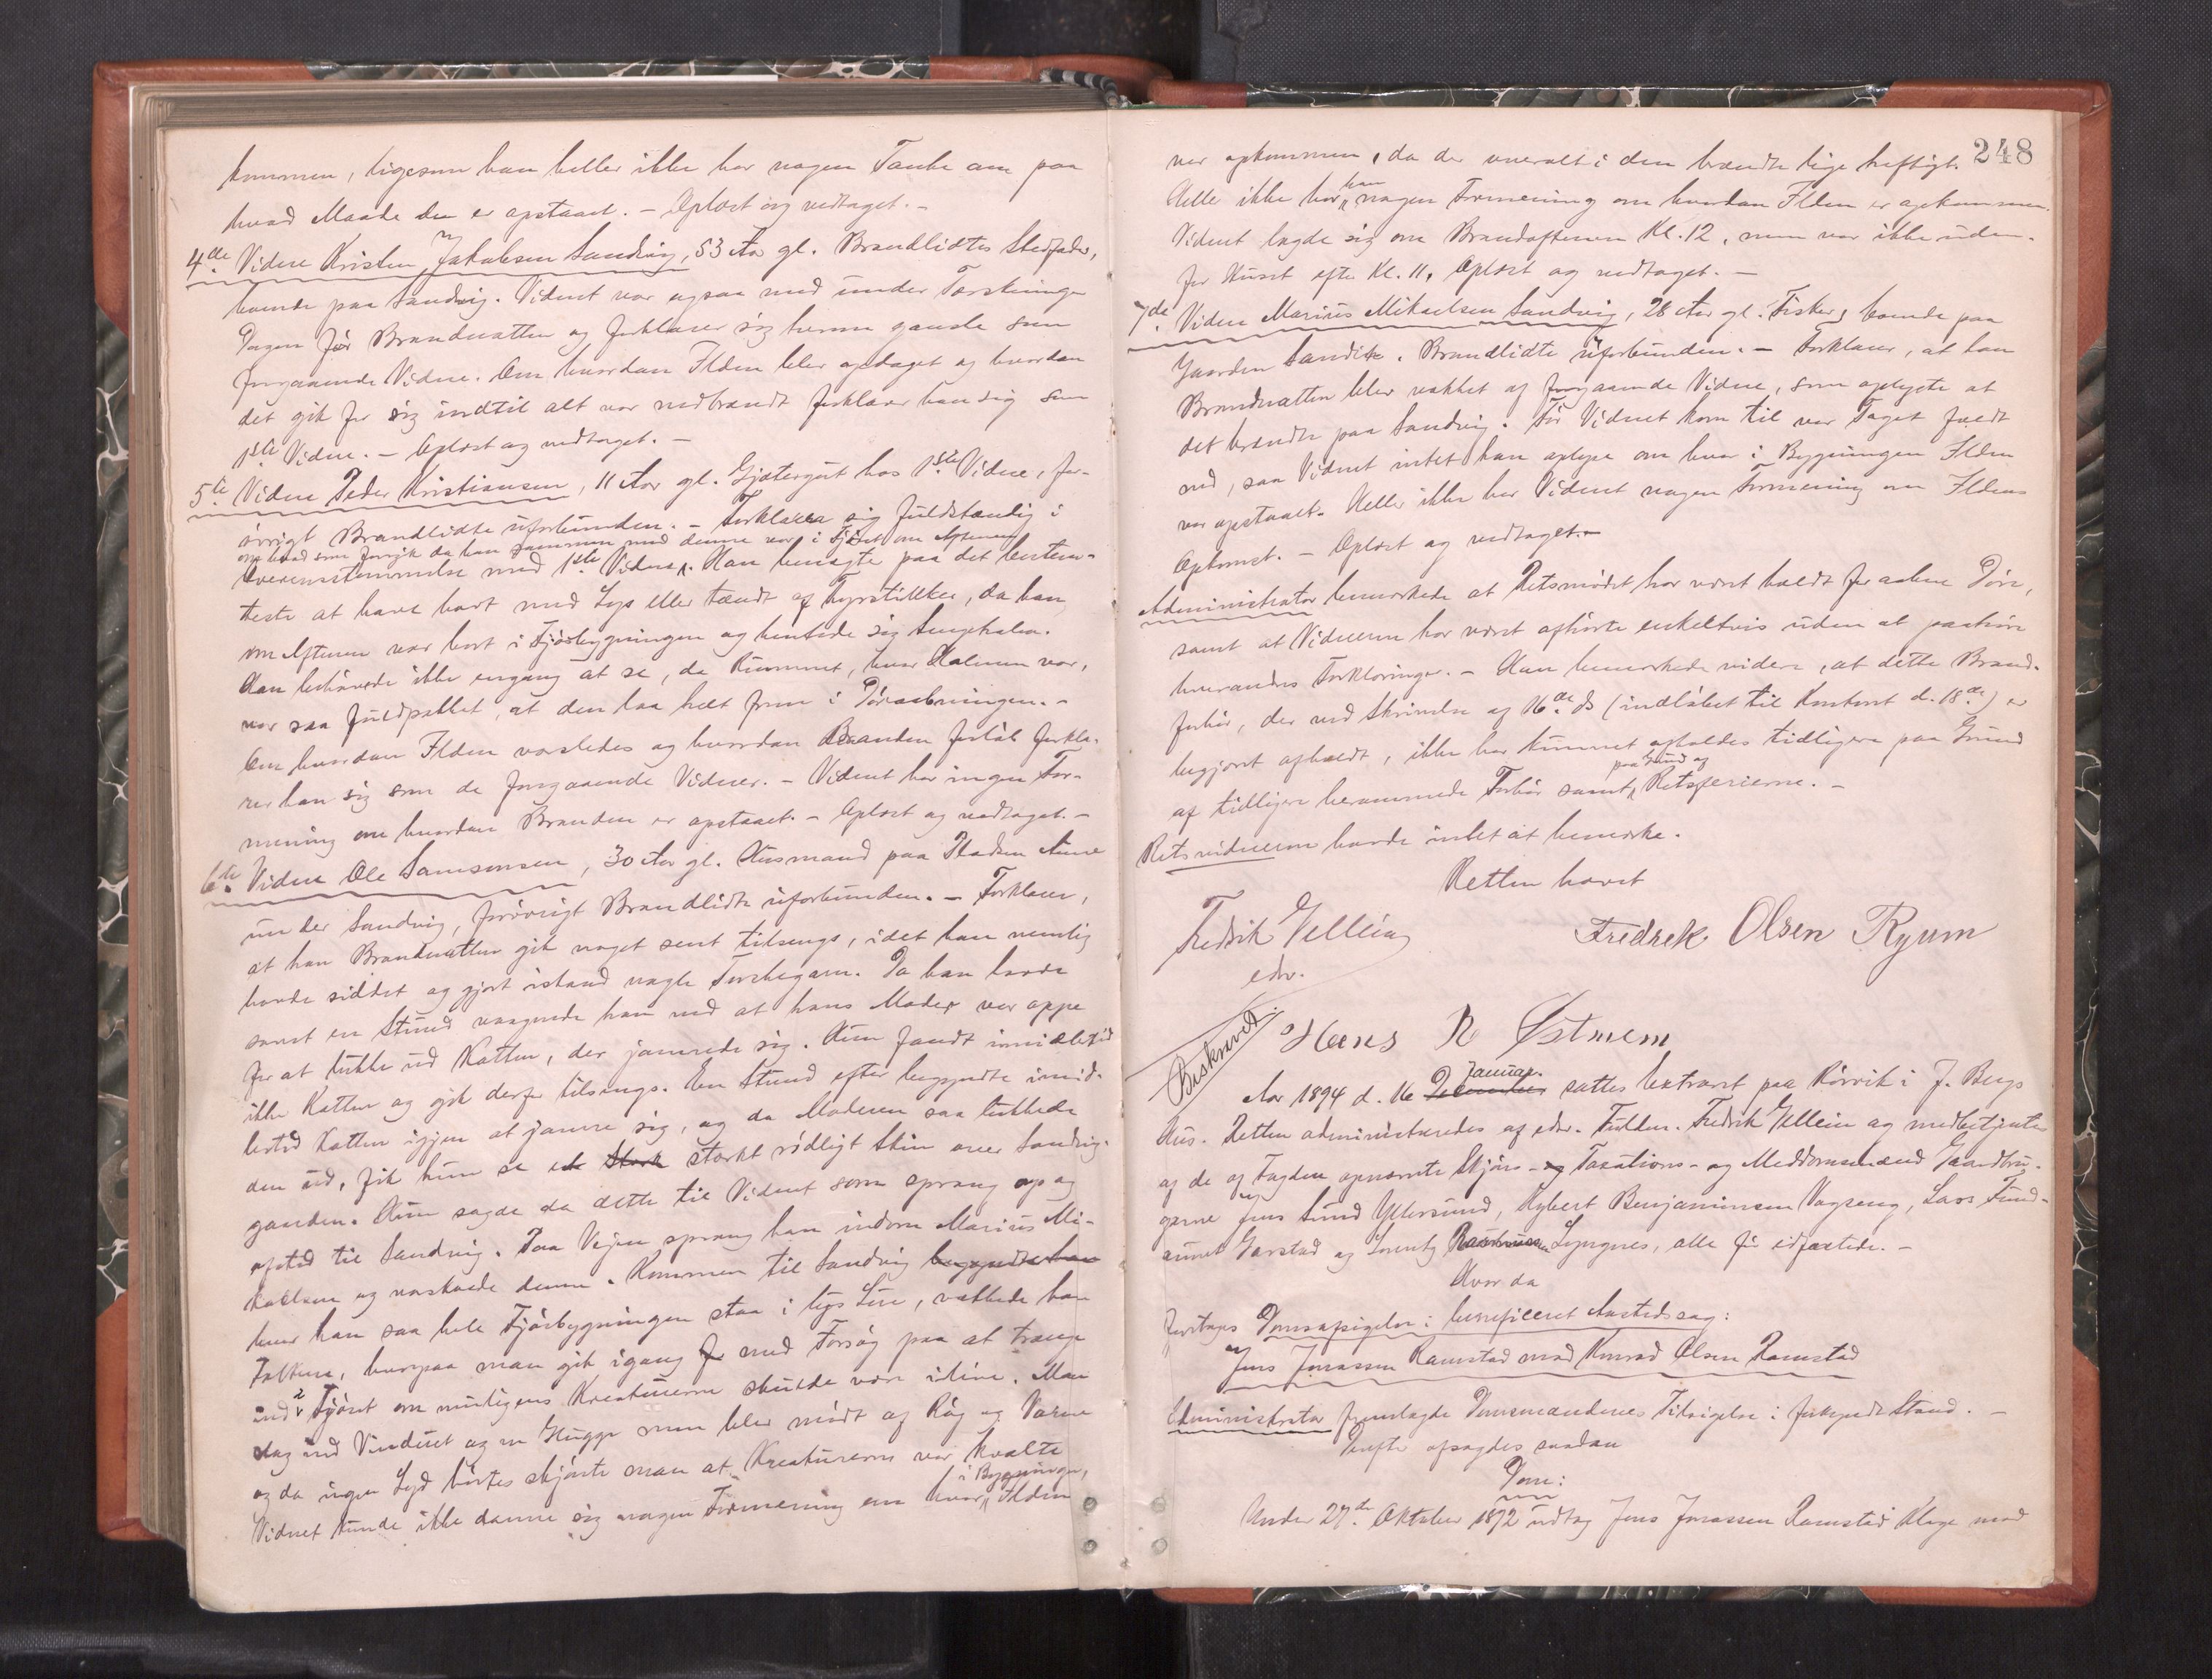 kommen, ligesom han heller ikke har nogen Tanke om paa
hvad Maade den er opstaaet. – Oplæst og vedtaget. –
4de Vidne Kristen Jakobsen Sandvig, 53 Aar gl. Brandlidtes Stedfader,
boende paa Sandvig. Vidnet var ogsaa med under Tærskningen
Dagen før Brandnatten og forklarer sig herom ganske som
foregaaende Vidne. Om hvordan Ilden blev opdaget og hvordan
det gik for sig indtil alt var nedbrændt forklarer han sig som
1ste Vidne. – Oplæst og vedtaget. –
5te Vidne Peder Kristiansen, 11 Aar gl. Gjætergut hos 1ste Vidne, for-
øvrigt Brandlidte uforbunden. – Forklarer sig fuldstændig i
om hvad som foregik da han sammen med denne var i Fjøset om Aftenen
Overensstemmelse med 1ste Vidne. Han benægte paa det bestem-
teste at have havt med Lys eller tændt af Fyrstikker, da han
om Aftenen var bort i Fjøsbygningen og hentede sig Sengehalm.
Han behøvede ikke engang at se, da Rummet, hvor Halmen var,
var saa fuldpakket, at den laa helt frem i Døraabningen. –
Om hvordan Ilden varsledes og hvordan Branden forløb forkla-
rer han sig som de foregaaende Vidner. – Vidnet har ingen For-
mening om hvordan Branden er opstaaet. – Oplæst og vedtaget. –
6te Vidne Ole Samsonsen, 30 Aar gl. Husmand paa Pladsen Aune
under Sandvig, forøvrigt Brandlidte uforbunden. – Forklarer,
at han Brandnatten gik noget sent tilsengs, idet han nemlig
havde siddet og gjort istand nogle Torskegarn. Da han havde
sovet en Stund vaagnede han ved at hans Moder var oppe
for at lukke ud Katten, der jamrede sig. Hun fandt imidlertid
ikke Katten og gik derfor tilsengs. En Stund efter begyndte imid-
lertid Katten igjen at jamre sig, og da Moderen saa lukkede
den ud, fik hun se et stærk stærkt rødligt Skin over Sandvig-
gaarden. Hun sagde da dette til Vidnet som sprang op og
afsted til Sandvig. Paa Vejen sprang han indom Marius Mi-
kaelsen og varskoede denne. Kommen til Sandvig begyndte han
hvor han saa hele Fjøsbygningen staa i lys Lue, vækkede han
Folkene, hvorpaa man gik igang for med Forsøg paa at trænge
ind i Fjøset om muligens Kreaturerne skulde være ilive. Man
slog ind Vinduet og en Glugge men blev mødt af Røg og Varme
og da ingen Lyd hørtes skjønte man at Kreaturerne var kvalte
Vidnet kunde ikke danne sig nogen Formening om hvor i Bygningen, Ilden
248
var opkommen, da der overalt i den brændte lige heftigt.
Heller ikke har han nogen Formening om hvordan Ilden er opkommen.
Vidnet lagde sig om Brandaftenen Kl. 12, men var ikke uden-
for Huset efter Kl. 11. Oplæst og vedtaget. –
7de Vidne Marius Mikaelsen Sandvig, 28 Aar gl. Fisker, boende paa
Gaarden Sandvik. Brandlidte uforbunden. – Forklarer, at han
Brandnatten blev vækket af foregaaende Vidne, som oplyste at
det brændte paa Sandvig. Før Vidnet kom til var Taget faldt
ned, saa Vidnet intet kan oplyse om hvor i Bygningen Ilden
var opstaaet. Heller ikke har Vidnet nogen Formening om Ildens
Opkomst. – Oplæst og vedtaget. –
Administrator bemærkede at Retsmødet har været holdt for aabne Døre,
samt at Vidnerne har været afhørte enkeltvis uden at paahøre
hverandres Forklaringer. – Han bemærkede videre, at dette Brand-
forhør, der ved Skrivelse af 16de ds (indløbet til Kontoret d. 18de) er
begjært afholdt, ikke har kunnet afholdes tidligere paa Grund
af tidligere berammede Forhør samt paa Grund af Retsferierne. –
Retsvidnerne havde intet at bemærke.
Retten hævet
Fredrik Gellein
edsv.
Fredrek Olsen Ryum
Hans R Østnem
Beskrevet.
Aar 1894 d. 16 December Januar sattes Extraret paa Rørvik i J. Bergs
Hus. Retten administreredes af edsv. Fuldm. Fredrik Gellein og medbetjentes
af de af Fogden opnævnte Skjøns- og Taxations- og Meddomsmænd Gaardbru-
gerne Jens Sund Ytlersund, Nybert Benjaminsen Vagseng, Lars Sund-
Garstad og Lorentz Rasmussen Lyngsnes, alle før edfæstede. –
Hvor da
foretages Domsafsigelse i beneficeret Aastedssag:
Jens Jonassen Ramstad mod Konrad Olsen Ramstad
Administrator fremlagde Domsmændenes Tilsigelse i forkyndt Stand. –
Derefter afsagdes saadan
Dom:
Under 27de Oktober 1892 udtog Jens Jonassen Ramstad Klage mod